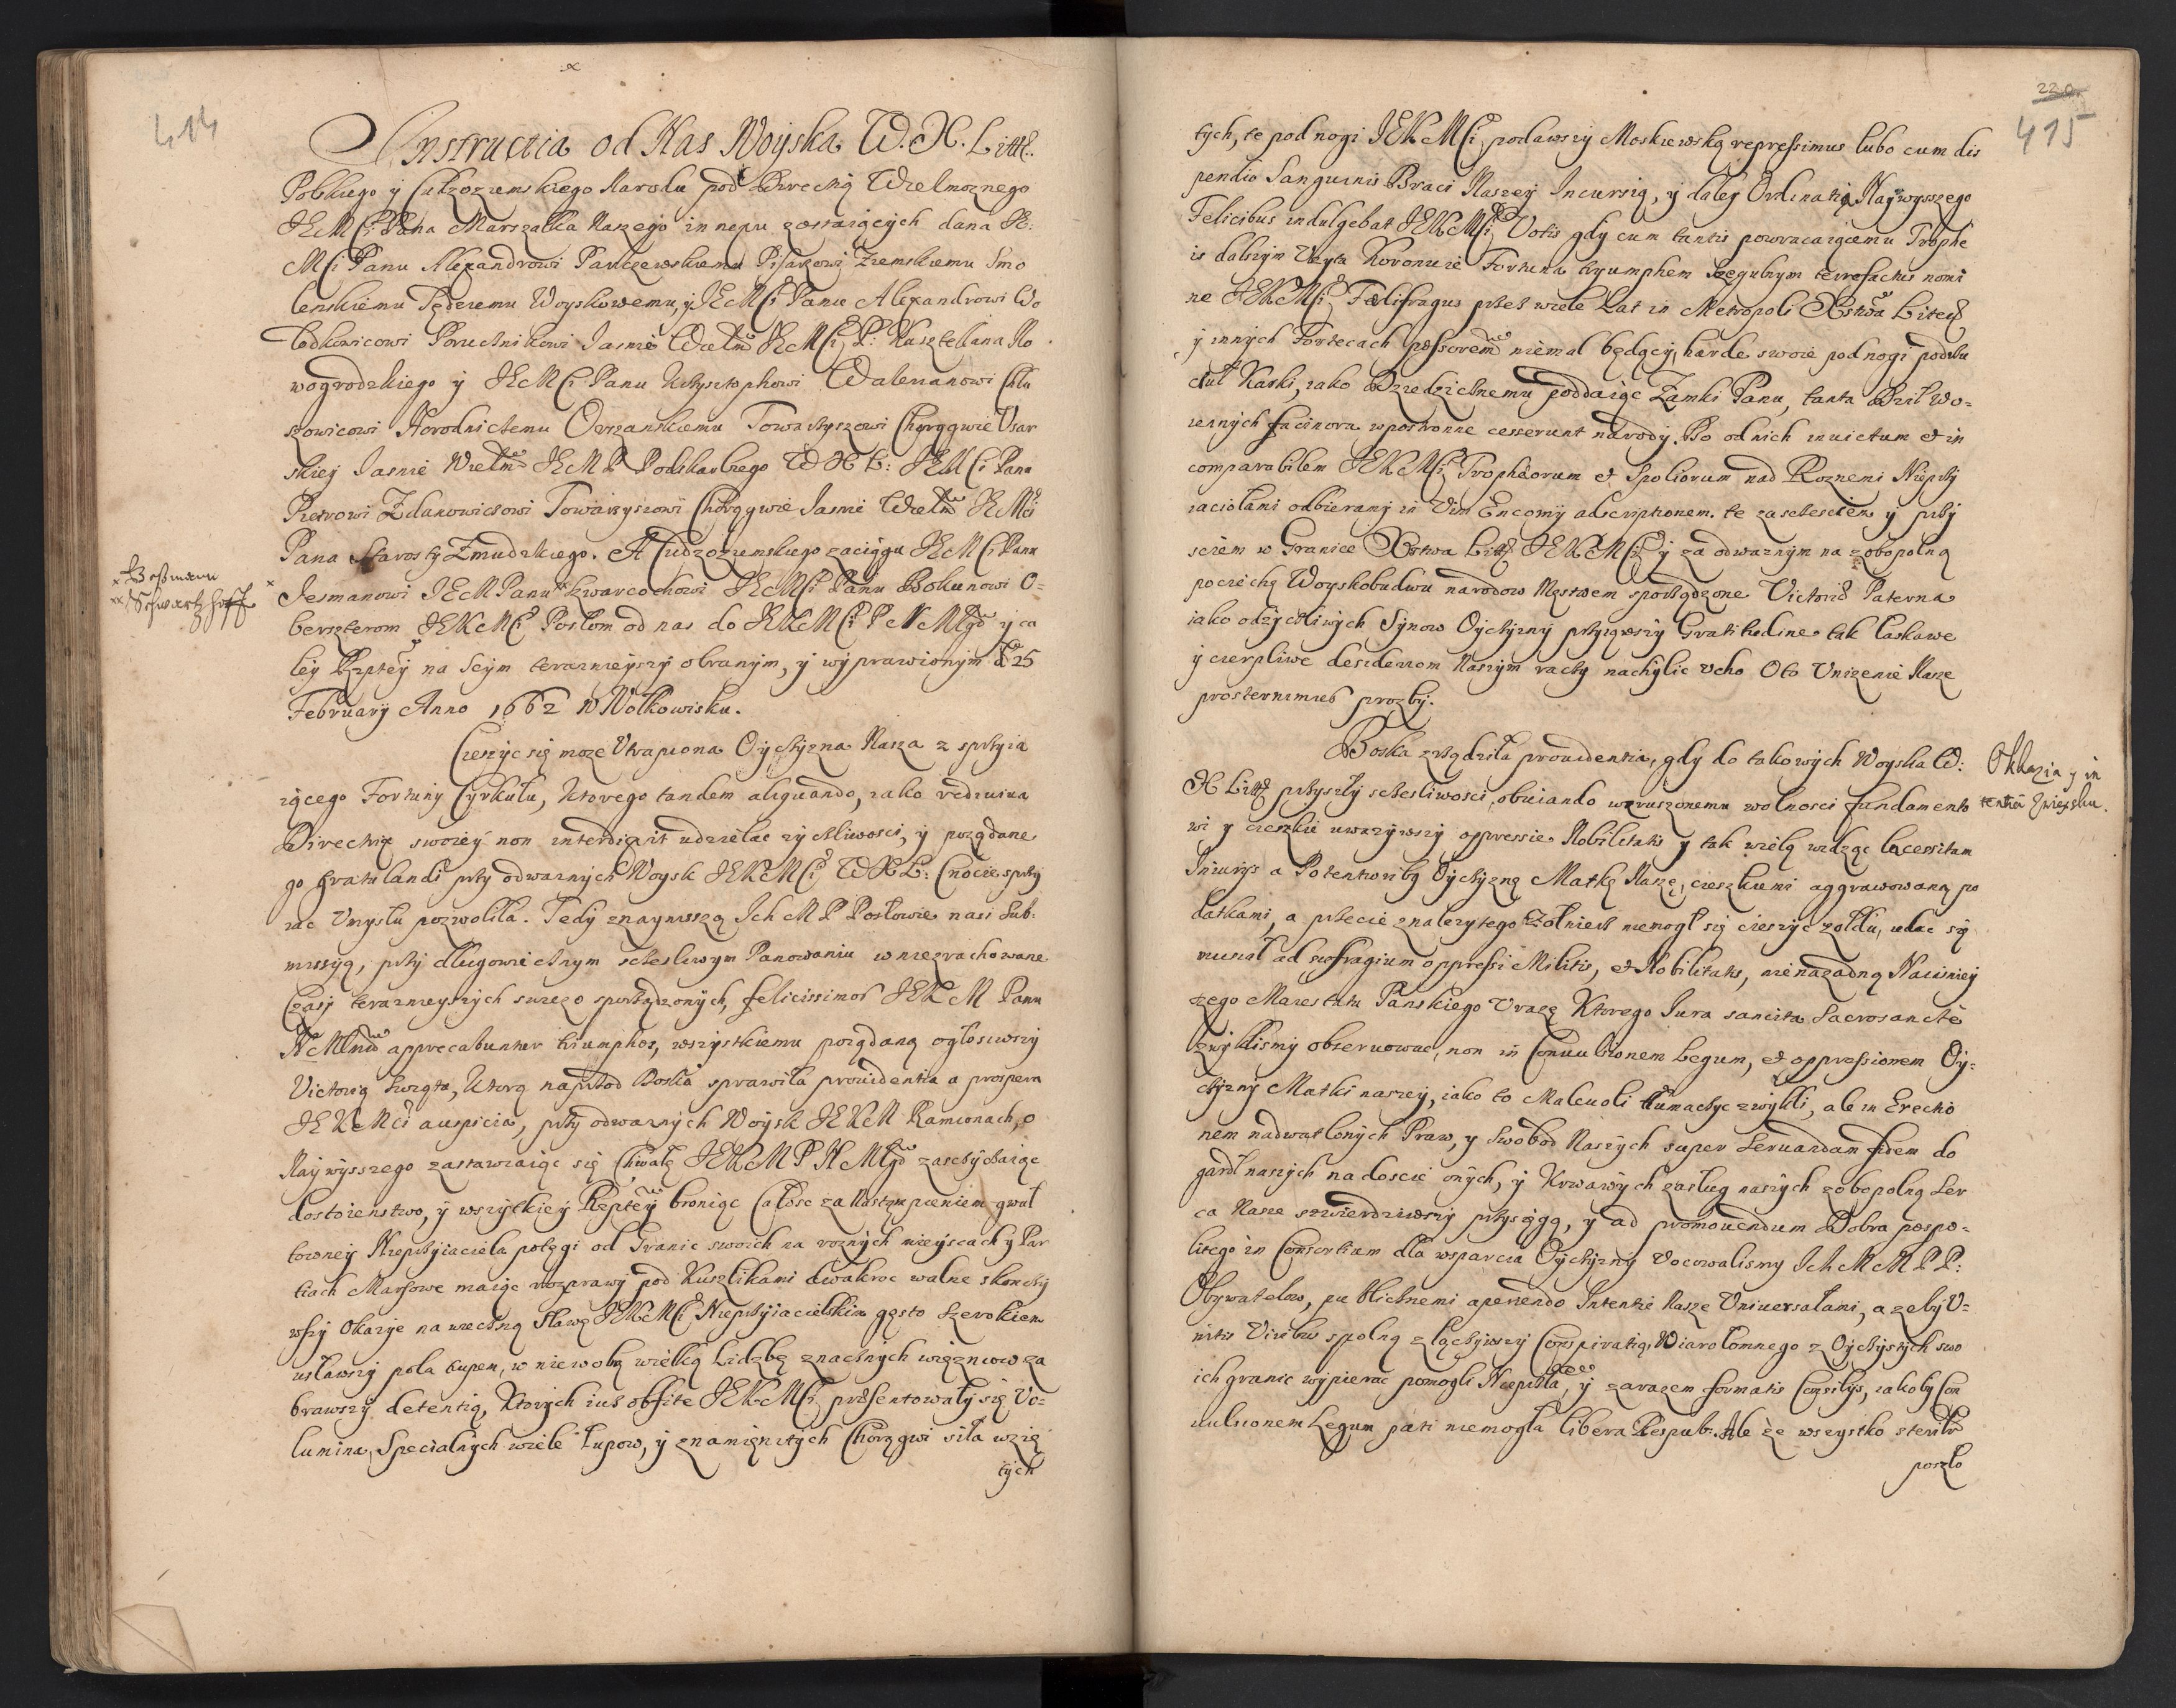 414
Instructia od Nas Woyska W. X. Litt.
Polskiego y Cudzoziemskiego Narodu pod Directią Wielmoznego
JEMCi Pana Marszałka Naszego in nexu zostaiących dana JE:
MCi Panu Alexandrowi Parczewskiemu Pisarzowi Ziemskiemu Smo
lenskiemu Sędziemu Woyskowemu, y JEMCi Panu Alexandrowi Wo
łodkowicowi Porucznikowi Jasnie Wielmo JEMCi P: Kasztellana No
wogrodzkiego y JEMCi Panu Krzysztophowi Walerianowi Chlu
sowicowi Horodniczemu Orszanskiemu Towarzyszowi Chorągwie Usar
skiey Jasnie Wielmo JEMP Podskarbiego W X L: JEMCi Panu
Piotrowi Zdanowiczowi Towarzyszowi Chorągwie Jasnie Wielmo JEMCi
Pana Starosty Zmudzkiego. A Cudzoziemskiego zaciągu JEMCi Panu
x Jesmanowi JEMPanu xx Szwarcochowi JEMCi Panu Bokunowi O=
x Besmann
xx Schwartzhoff
berszterom JEKMCi Posłom od nas do JEKMCi P N Młgo y ca
łey Rzptey na Seym teraznieyszy obranym, y wyprawionym d 25
February Anno 1662 w Wołkowisku.
Cieszyc się moze Utrapiona Oyczyzna Nasza z sprzyia
iącego Fortuny Cyrkułu, ktorego tandem aliquando, iako rediviva
Directią swoiey non interdixit udzielac zyczliwosci, y poządane
go gratulandi przy odwaznych Woysk JEKMCi WXL: Cnocie sprzy
iac Umysłu pozwoliła. Tedy znayniszszą Ich M P Posłowie nasi Sub:
missyą, przy długowiecznym szczesliwym Panowaniu w niezrachowane
Czasy teraznieyszych swiezo sporządzonych, felicissimos JEKM Panu
N Młmu apprecabuntur triumphos, wszystkiemu poządaną ogłosiwszy
Victorią Swiatu, ktorą naprzod Boska sprawiła providentia a prospera
JEKMCi auspicia, przy odwaznych Woysk JEKM Ramionach, o
Naywyszszego zastawiaiąc się Chwałę JEKMP N Młgo zaszczycaiąc
dostoienstwo, y wszytkiey Rzptey broniąc Całosc za Nastąpieniem gwał
towney Nieprzyiaciela potęgi od Granic swoich na roznych mieyscach y Par
tiach Marsowe maiąc rozprawy pod Kuszlikami dwakroc walne skonczy
wszy Okazye na wieczną Sławę JEKMCi Nieprzyiacielskim gęsto szerokiem
usławszy pola trupem, w niewolą wielką Lidzbę znacznych więzniow za
brawszy detentią, Ktorych iusz obfite JEKMCi præsentowały się Vo=
lumina, Specialnych wiele łupow, y znamienitych Chorągwi siła wzię
tych
220
415
tych, te pod nogi JEKMCi podawszy Moskiewską repressimus lubo cum dis
pendio Sanguinis Braci Naszey Incursią, y daley Ordinatią Naywyszszego
Felicibus indulgebat JEKMCi Votis gdy cum tantis powracaiącemu Trophe
is dalszym Uzyta Koronuie Fortuna tryumphem Szegulnym terrefactus nomi
ne JEKMCi Fædifragus przez wiele Lat in Metropoli Xstwa Litego
y innych Fortecach possessorem niemal będący, harde swoie pod nogi podrzu
cił Karki, iako Dziedzicznemu poddaiąc Zamki Panu, tanta Dzieł Wo=
iennych facinora w postronne cesserunt narody. Bo od nich invictum et in
comparabilem JEKMCi Trophæorum et Spoliorum nad Roznemi Nieprzy
iaciołami odbierany in Vim Encomÿ adscriptionem. te za szczesciem y przy
sciem w Granice Xstwa Litt. JEKMCi y za odwaznym na zobopolną
pociechę Woysk obudwu narodow Męstwem sporządzone Victorie Paterna
iako od zyczliwych Synow Oyczyzny przyiąwszy Gratitudine tak łaskawe
y cierpliwe desideriom Naszym raczy nachylic ucho Oto Unizenie Nasze
prosternimus prozby.
Boska zrządziła providentia, gdy do takowych Woyska W:
X Litt. przyszły szczesliwosci, obviando wzruszonemu wolnosci fundamento
Okkazia y in
tentia Zwiąsku.
wi y cieszkie uwazywszy oppressie Nobilitatis y tak wielą widząc lacessitam
Iniurys a Potentioriby Oyczyznę Matkę Naszę, cieszkiemi aggrawowaną po
datkami, a przecie z nalezytego Zołnierz niemogł się cieszyc zołdu, udac się
musiał ad suffragium oppressi Militis, et Nobilitatis, nie na zadną Nayiasniey
szego Maiestatu Panskiego Urazę Ktorego Iura sancita Sacrosancte
zwyklismy observowac, non in Convulsionem Legum, et oppressionem Oy=
czyzny Matki naszey, iako to Malevoli tłumaczyc zwykli, ale in Erectio
nem nadwątlonych Praw, y Swobod Naszych super Servandam fidem do
gardł naszych na doscie onych, y Krwawych zasług naszych zobopolną Ser
ca Nasze stwierdziwszy przysięgą, y ad promovendum Dobra pospo=
litego in Consortium dla wsparcia Oyczyzny vocowalismy Ich M M P P:
Obywatelow, publicznemi aperiendo Intentie Nasze Uniwersałami, a zeby U=
nitis Viribus spolną złączywszy Conspiratią, Wiarołomnego z Oyczystych swo
ich granic wypierac pomogli Nieprzyla, y zarazem formatis Consilys, iakoby Con
vulsionem Legum pati niemogła libera Respub: Ale ze wszystko steriliter
poszło